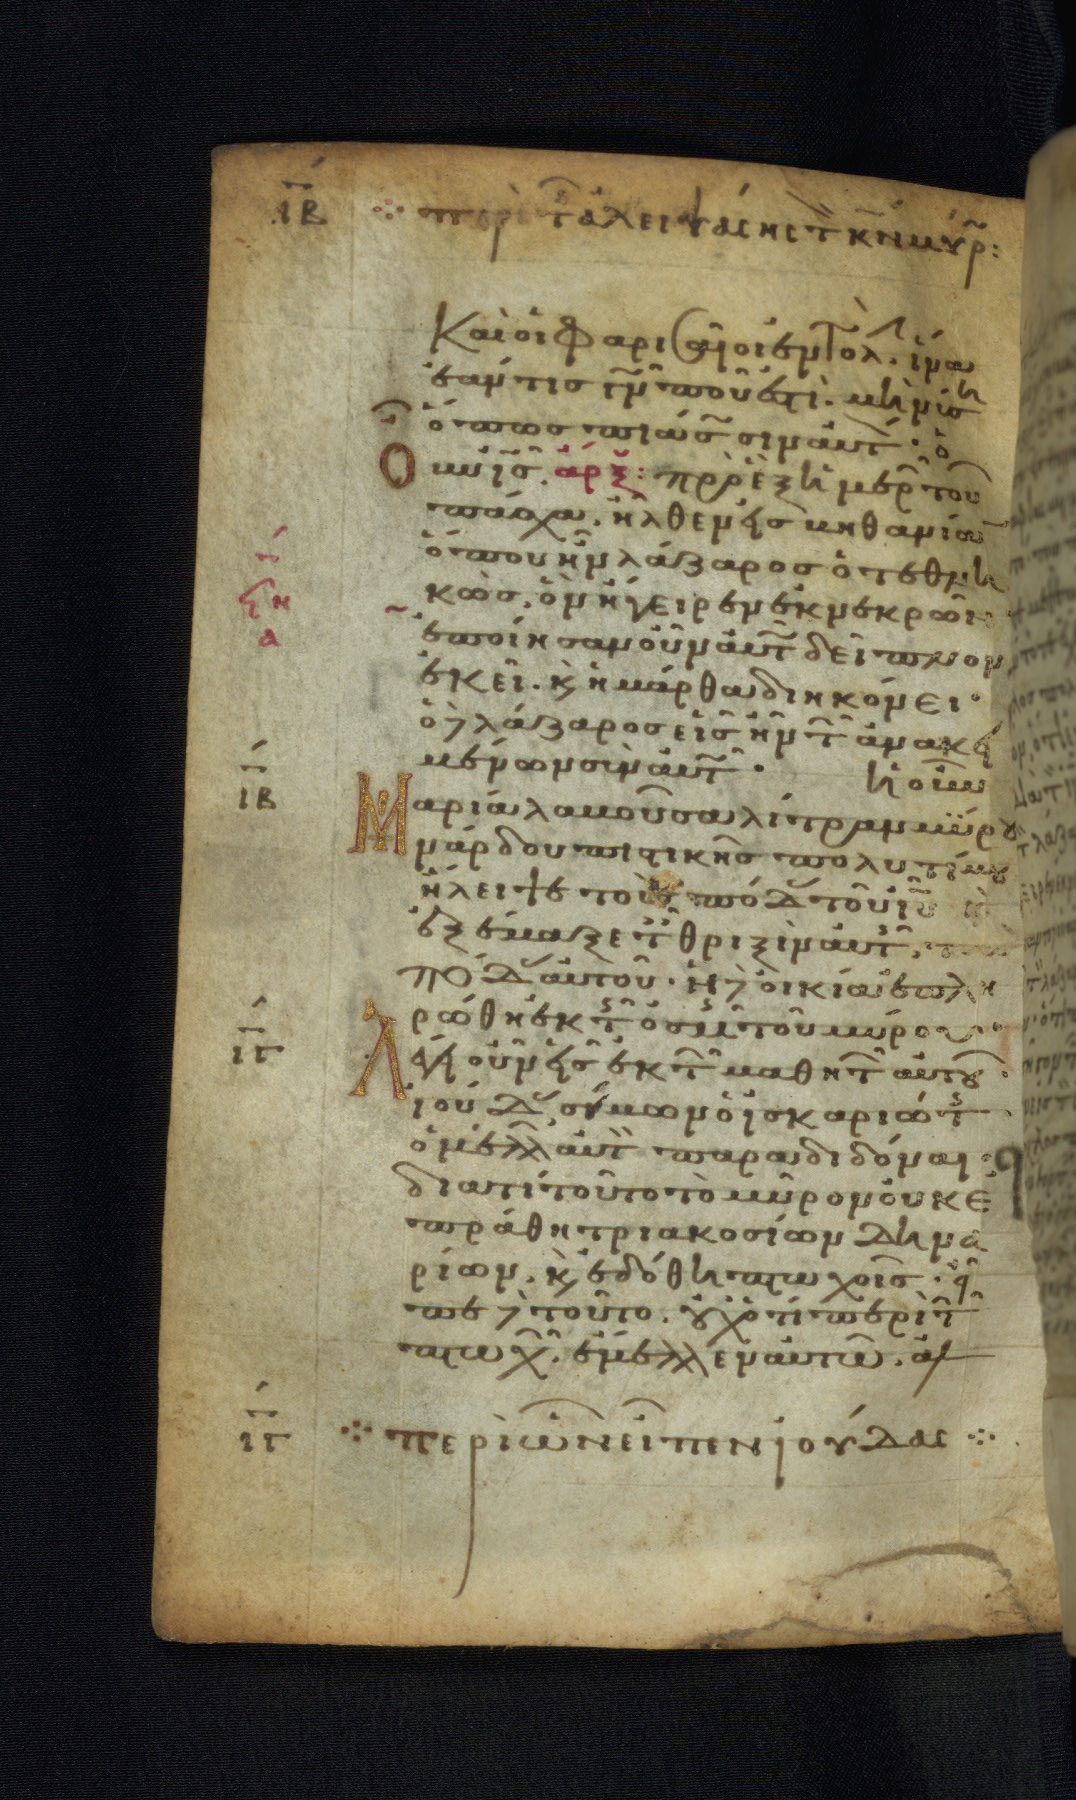 ΙΒ περὶ τ ἀλειψάσης τ κν μύρ:
Καὶ οἱ Φαρισαῖοι ἐντολ. ἵνα
ἐάν τις γν ποῦ ἐστι. μηνύσ
ὅπως πιάσ σιν αὐτ. ὁ
Ο οὖν ἰς. ἀρχ: πρὸ ἓξ ἡμερ τοῦ
πάσχα. ἦλθεν εἰς βηθανίαν
ὅπου ἦν λάζαρος ὁ τεθνη
κὼς. ὃν ἤγειρεν ἐκ νεκρῶν
ἐποίησαν οὖν αὐτ δεῖπνον
ἐκεῖ. κ ἡ μάρθα διηκόνει.
ὁ λάζαρος εἷς ἦν τ ἀνακει
μένων σὺν αὐτ. ἡ οὖν
Μαρία λαβοῦσα λίτραν μύρου
νάρδου πιστικῆς πολυτίμου
ἤλειψε τοὺς πόδ τοῦ ιυ κ
ἐξέμαξε τ θριξὶν αὐτ.
πόδ αὐτοῦ. ἡ οἰκία ἐπλη
ρώθη ἐκ τ ὀσμ τοῦ μύρου.
Λέγει οὖν εἷς ἐκ τ μαθητ αὐτοῦ.
ἰούδ σίμων ὁ ἰσκαριώτ
ὁ μέλλ αὐτ παραδιδόναι.
διατί τοῦτο τὸ μύρον οὐκ ἐ
πράθη τριακοσίων δηνα
ρίων. κ ἐδόθη πτωχοῖς. εἶ
πε τοῦτο. οὐχ ὅτι περὶ τ
πτωχ. ἔμελλεν αὐτῶ. ἀλ
ΙΓ περὶ ὧν εἶπεν ἰούδας
ΙΒ
ΙΓ